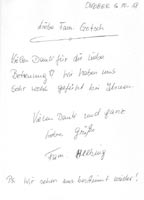 Liebe Fam. Gstach
Vielen Dank für die liebe
Betreuung wir haben uns
sehr wohl gefühlt bei Ihnen.
Vielen Dank und ganz
liebe Grüße
Fam.
Ps. Wir sehen uns bestimmt wieder!